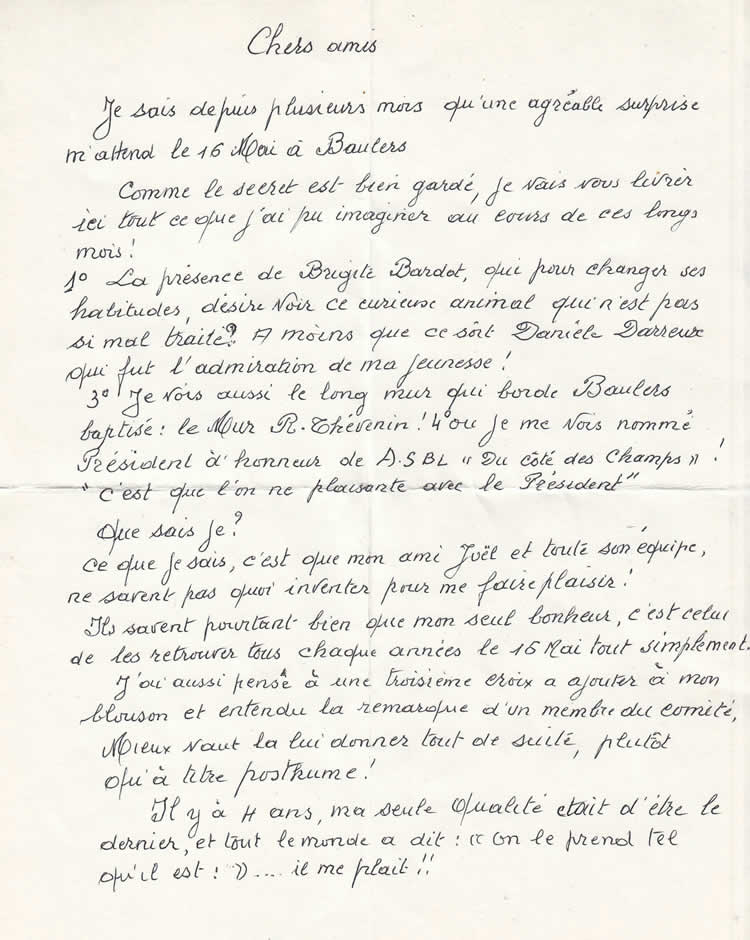 Chers amis
Je sais depuis plusieurs mois qu'une agréable surprise
m'attend le 16 Mai à Baulers
Comme le secret est bien gardé, je vais vous livrer
ici tout ce que j'ai pu imaginer au cours de ces longs
mois!
1° La présence de Brigite Bardot, qui pour changer ses
habitudes, désire voir ce curieuse animal qui n'est pas
si mal traité? A moins que ce soit Danièle Darreux
qui fut l'admiration de ma jeunesse!
3° Je vois aussi le long mur qui borde Baulers
baptisé: le Mur R. Thévenin! 4° ou je me vois nommé
Président d'honneur de A.S.BL « Du côté des Champs »!
"c'est que l'on ne plaisante avec le Président"
Que sais je?
ce que je sais, c'est que mon ami Joël et toute son équipe,
ne savent pas quoi inventer pour me faire plaisir!
Ils savent pourtant bien que mon seul bonheur, c'est celui
de les retrouver tous chaque années le 16 Mai tout simplement.
J'ai aussi pensé à une troisième croix a ajouter à mon
blouson et entendu la remarque d'un membre du comité,
Mieux vaut la lui donner tout de suite, plutôt
qu'à titre posthume!
Il y à 4 ans, ma seule Qualité etait d'être le
dernier, et tout le monde a dit: « on le prend tel
qu'il est! » .... il me plait!!